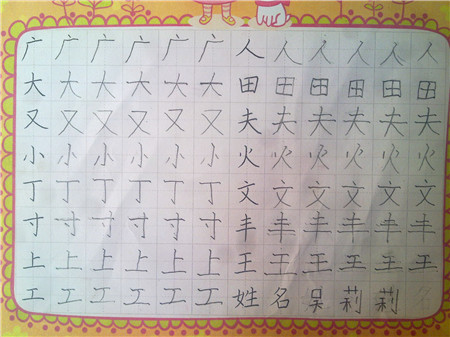 广广广广广广人人人人人人
大大大大大大田田田田田田
又又又又又又夫夫夫夫夫夫
小小小小小小火火火火火火
丁丁丁丁丁丁文文文文文文
寸寸寸寸寸寸丰丰丰丰丰丰
上上上上上上王王王王王王
工工工工工工姓名吴莉莉